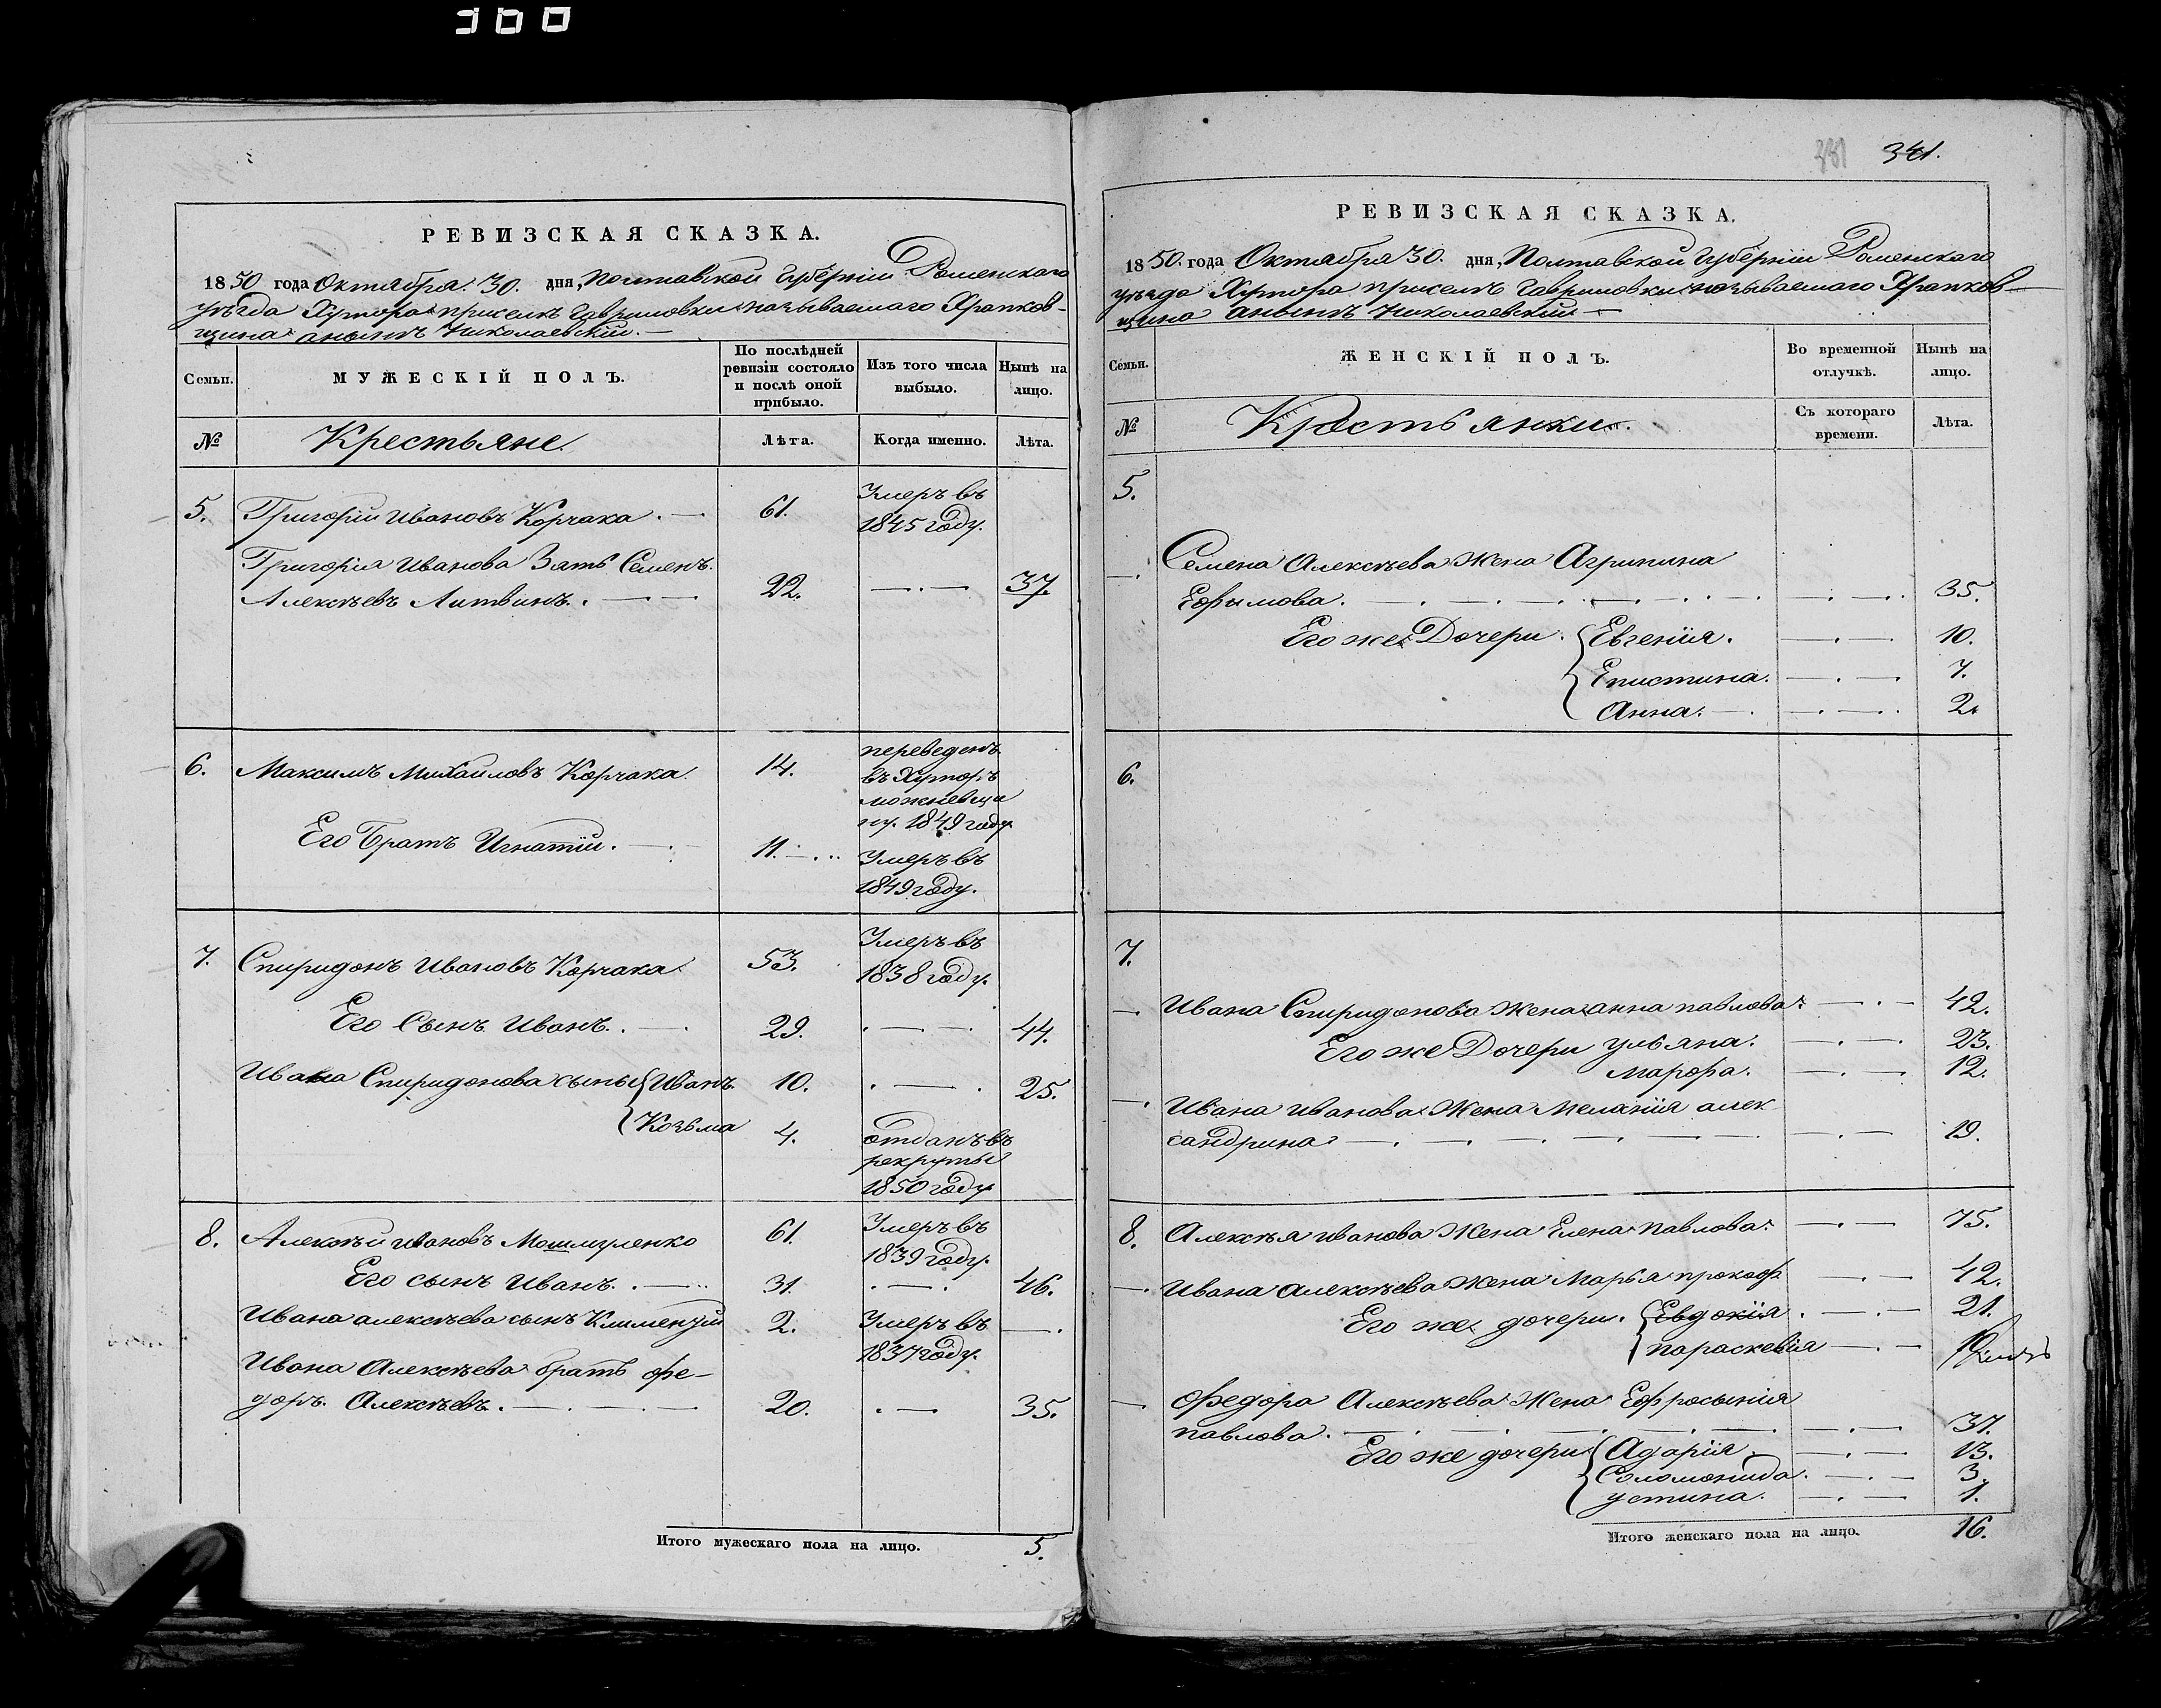 300
РЕВИЗСКАЯ СКАЗКА.
1850 года Октября 30. дня, Полтавской Губерніи Роменского
уѣзда Хутора приселк Гавриловки называемаго Храпков-
щина аноынъ Николаевскій.
Семьи.
МУЖЕСКІЙ ПОЛЪ.
По послѣдней
ревизіи состояло
и послѣ оной
прибыло.
Изъ того числа
выбыло.
Нынѣ на
лицо.
№
Крестьяне.
Лѣта.
Когда именно.
Лѣта.
5. Григорій Ивановъ Корчака. 61. Умеръ въ
1845 году.
Григорія Иванова Зять Семенъ
Алексѣевъ Литвинъ. 22. 37.
6. Максимъ Михайловъ Корчака. 14. переведенъ
въ Хуторъ
можневщи
ну. 1849 году.
Его Братъ Игнатій. 11. Умеръ въ
1849 году.
7. Спиридонъ Ивановъ Корчака 53. Умеръ въ
1838 году.
Его Сынъ Иванъ. 29. 44.
Ивана Спиридонова сыны Иванъ 10. 25.
Козьма 4. отданъ въ
рекруты
1850 году
8. Алексѣй Ивановъ Мошмуленко 61. Умеръ въ
1839 году.
Его сынъ Иванъ. 31. 46.
Ивана алексѣева сынъ Климентій 2. Умеръ въ
1837 году.
Ивана Алексѣева братъ Фе-
доръ Алексѣевъ. 20. 35.
Итого мужескаго пола на лицо. 5.
341.
РЕВИЗСКАЯ СКАЗКА.
1850. года Октября 30. дня, Полтавской Губерніи Роменскаго
уѣзда Хутора приселкъ Гавриловки называемаго Храпков-
щина аноынъ Николаевскій
Семьи.
ЖЕНСКІЙ ПОЛЪ.
Во временной
отлучкѣ.
Нынѣ на
лицо.
№
Крестьянки.
Съ котораго
времени.
Лѣта.
5.
Семена Алексѣева Жена Агрипина
Ефымова. 35.
Его же Дочери. Евгенія. 10.
Епистина. 7.
Анна. 2.
6.
7.
Ивана Спиридонова Жена анна павлова 42.
Его же Дочери ульяна. 23.
Марфа. 12.
Ивана Иванова Жена Меланія алек
сандрина 19.
8. Алексѣя иванова Жена Елена Павлова 75.
Ивана Алексѣева Жена Марья прокоф 42.
Его же дочери. Евдокія. 21.
параскевія
Федора Алексѣева Жена Ефросынія
павлова. 37.
Его же дочери Агарія 13.
Соломонида. 3.
устина. 1.
Итого женскаго пола на лицо. 16.